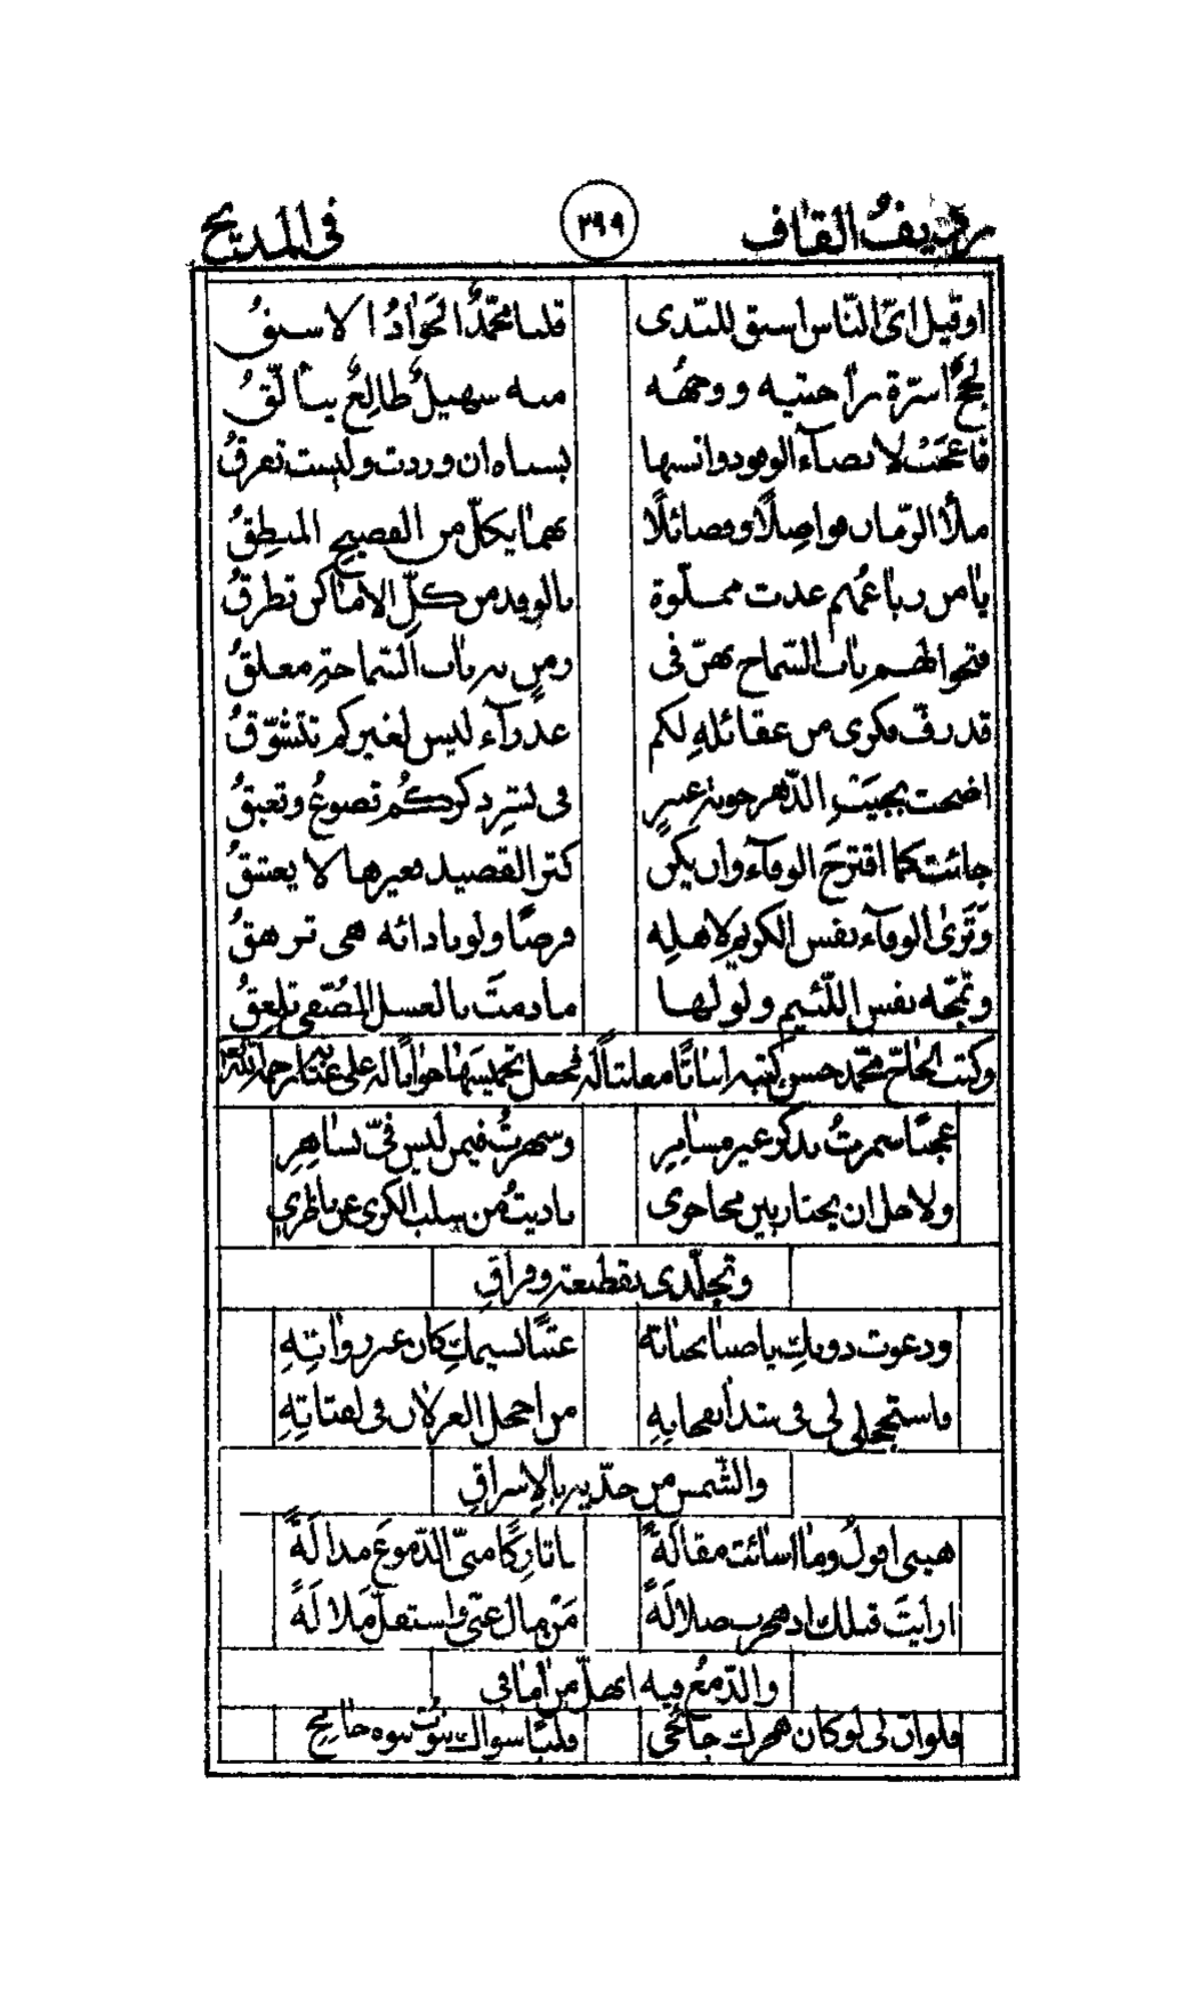 رديف القاف ٣٩٩ في المديح
او قيل ايّ النّاس اسبق للنّدى قلنا محمّدٌ الجَوادُ الاسبقُ
اسرّة راحتيه ووجهُه منه سهيلٌ طالِعٌ يتألّقُ
فاعجَبْ لانصآء الوفود وانسها بسناه ان وردت وليست تغرقُ
ملأا الزّمان فواضِلاً وفضائلاً بهما يكلّ من الفصيحِ المنطِقُ
يا من رباعُهم غدت مملوّة بالوفد من كلّ الأماكن تطرقُ
فتحوا لهم باب السّماح بهنّ في زمنٍ به باب السّماحةِ مغلقُ
قد زفّ فكرى من عقائلهِ لكم عذرآء ليس لغيركم تتشوّقُ
اضحت بجيبِ الدّهر جونة عنبرٍ في نشرِ ذكركُم تضوعُ وتعبقُ
جائت كما اقترحَ الوفآء وان يكن كثر القصيد فغيرها لا يعشقُ
وَتَرَى الوفآء نفس الكريم لاهلِه فرضًا ولو بادائه هي ترهقُ
وتمجّه نفس اللّئيم ولو لها مادمتَ بالعسل المُصَفّى تلعقُ
وكتب الحاج محمّد حسن كتبه ابياتًا معاتبًا له فجعل تخميسها جوابًا له على عتابه رحمه الله
عجبًا سمرتُ بذكر غير مسامِرِ وسهرتُ فيمن ليس فيّ بساهِرِ
ولاهل ان يختار بين محاجرى ناديتُ من سلب الكرى عن ناظري
وتجلّدى بقطيعة وفراقِ
ودعوت دونكِ يا صبا بحياته عتبًا نسيمكِ كان عن رواتِهِ
فاستجملى لي في شذا نفحاتِهِ من اخجل الغزلان في لفتاتِهِ
والشّمس من خدّيه بالإشراقِ
هبنى اقولُ وما اسائت مقالَةً يا تاركًا منّي الدّموعَ مذالَةً
ارايتَ قبلك اذ هجرت ضلالَةً مَنْ مال عنّي واستقلّ مَلالَةً
والدّمعُ فيه انهلّ من اماقي
فلوانّ لى لو كان هجرك جانحي قلبًا سواك بثوب جانِحِ